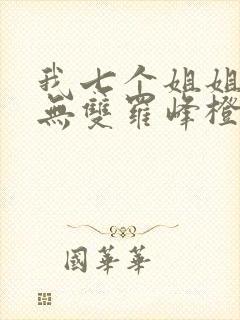 我七个姐姐
無雙羅峰橙
國華華